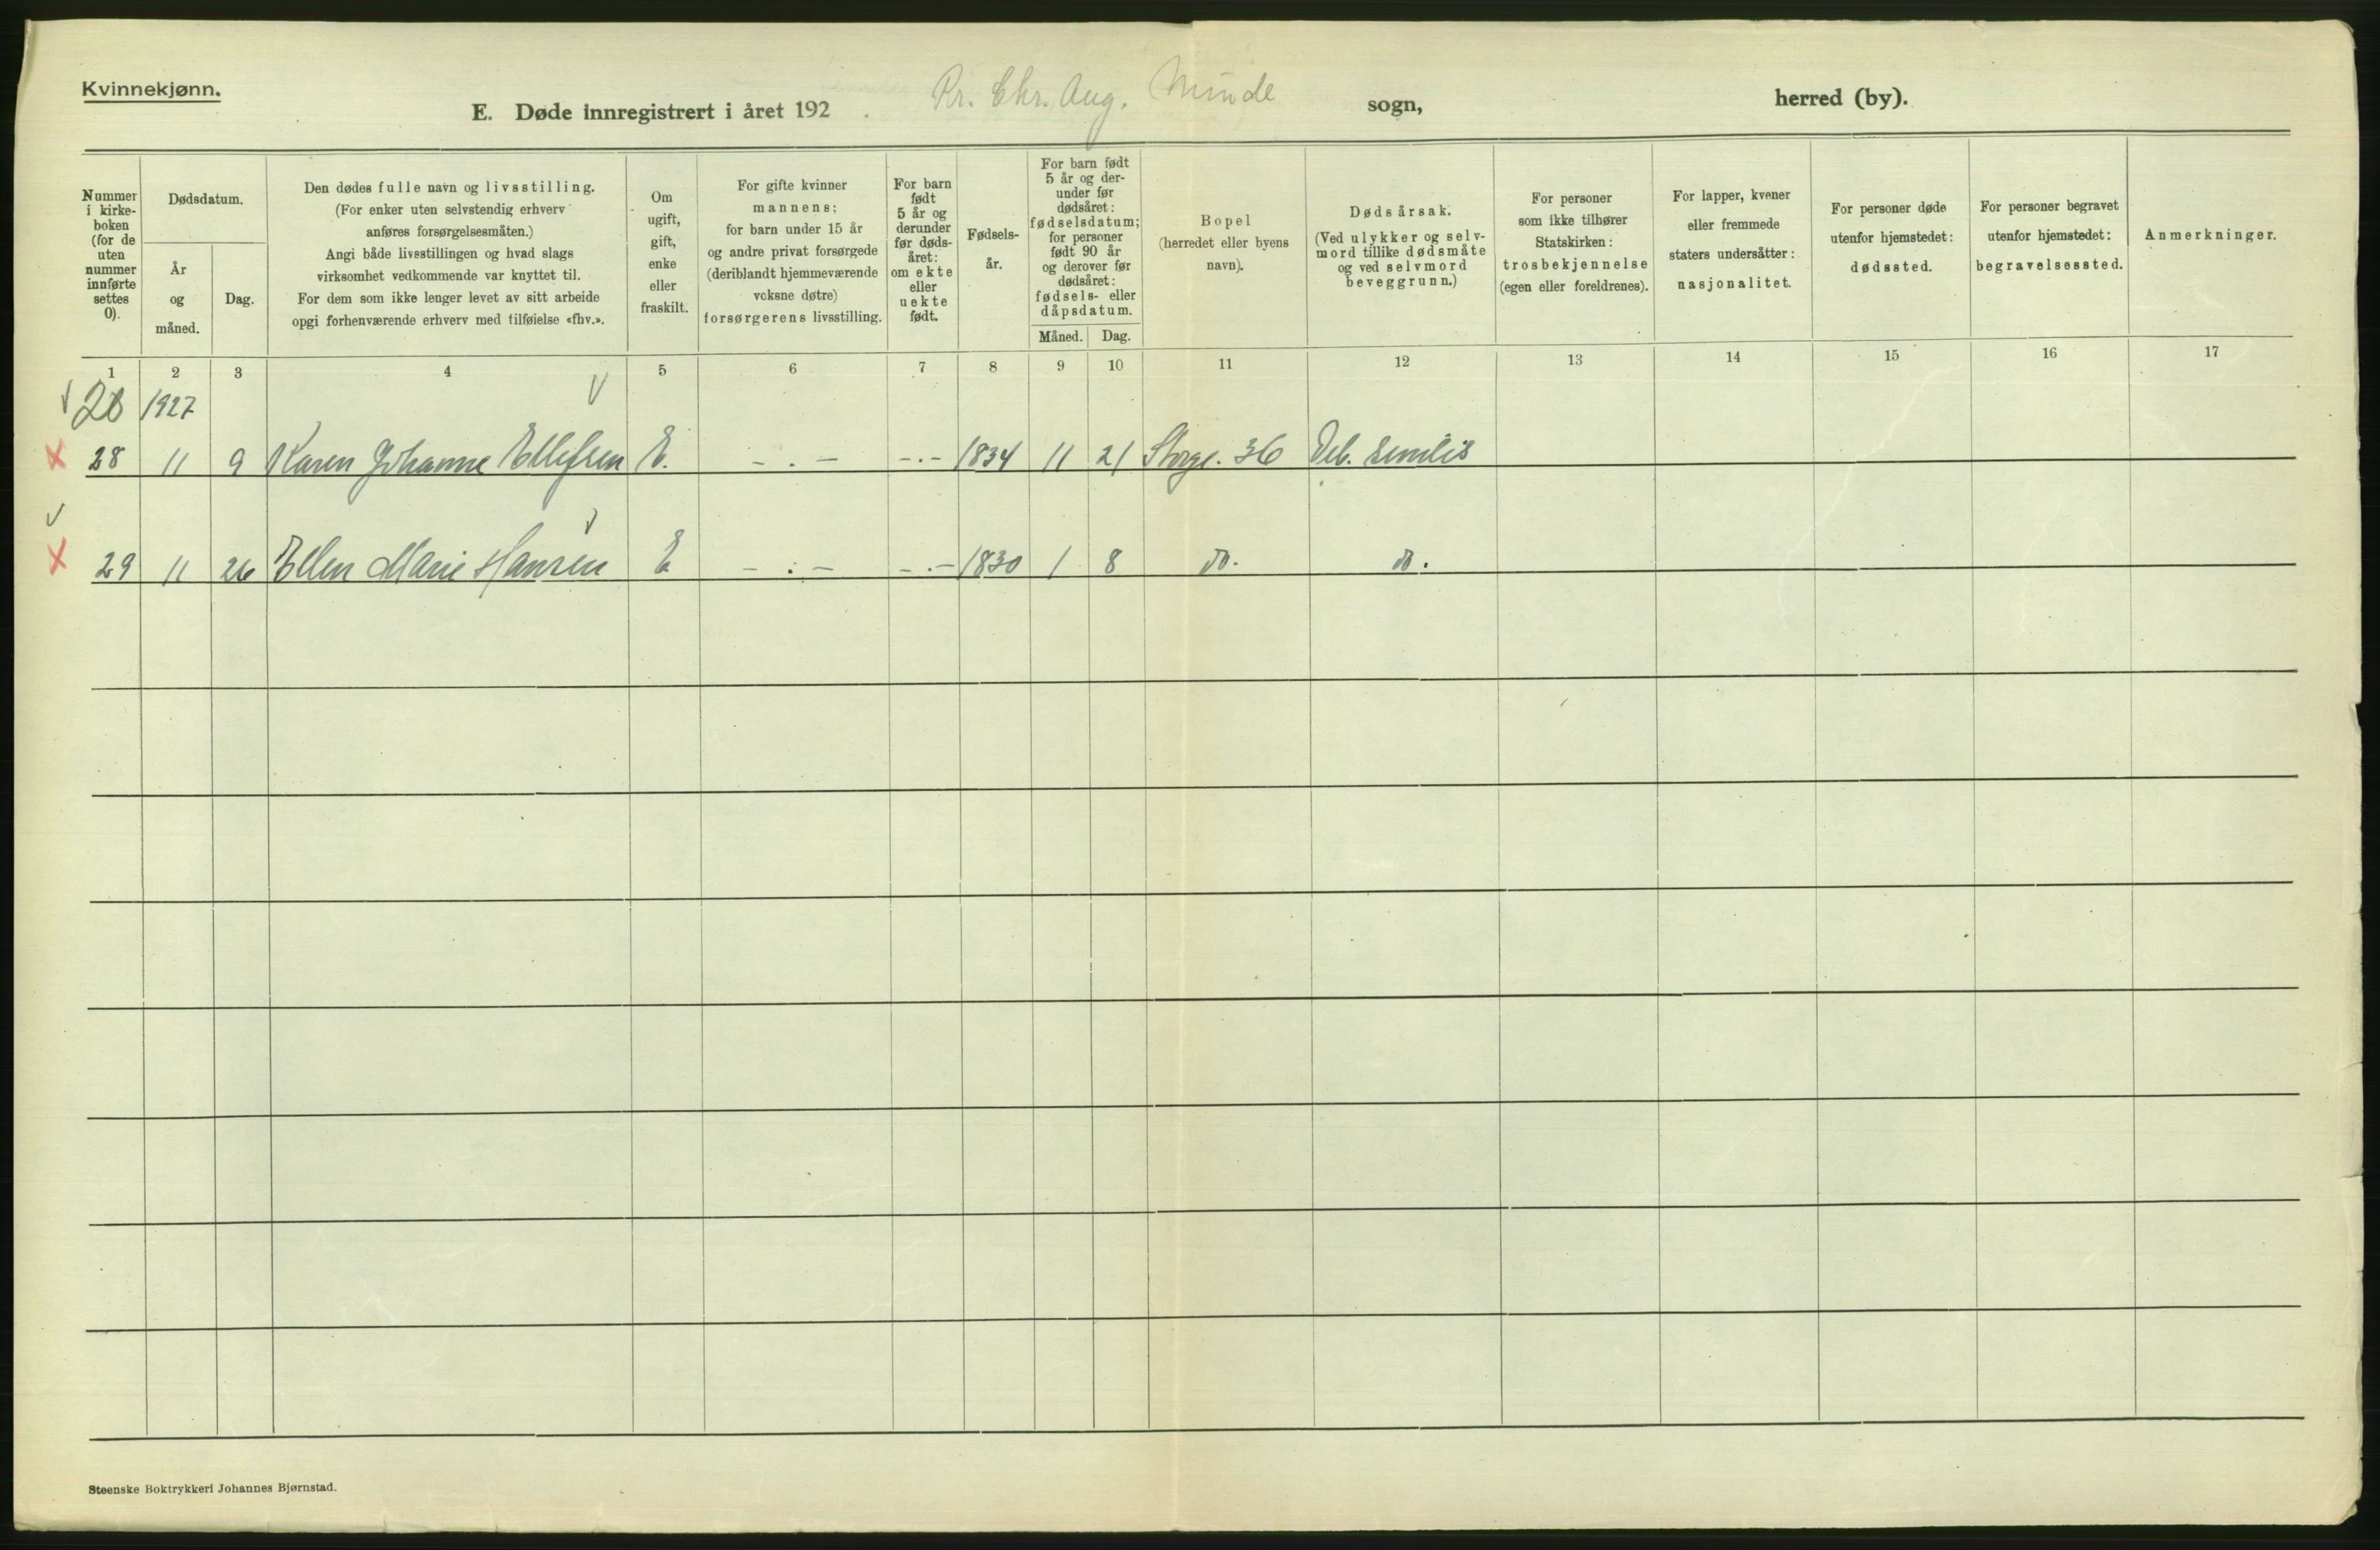 Kvinnekjønn.
E. Døde innregistrert i året 192 . Pr. Chr. Aug. Minde sogn, herred (by).
Nummer i kirke-boken (for de uten nummer innførte settes 0).
Dødsdatum.
År og måned.
Dag.
Den dødes fulle navn og livsstilling.
(For enker uten selvstendig erhverv
anføres forsørgelsesmåten.)
Angi både livsstillingen og hvad slags
virksomhet vedkommende var knyttet til.
For dem som ikke lenger levet av sitt arbeide
opgi forhenværende erhverv med tilføielse «fhv.».
Om
ugift,
gift,
enke
eller
fraskilt.
For gifte kvinner
mannens;
for barn under 15 år
og andre privat forsørgede
(deriblandt hjemmeværende
voksne døtre)
forsørgerens livsstilling.
For barn
født
5 år og
derunder
før døds-
året:
om ekte
eller
uekte
født.
Fødsels-
år.
For barn født
5 år og der-
under før
dødsåret:
fødselsdatum;
for personer
født 90 år
og derover før
dødsåret:
fødsels- eller
dåpsdatum.
Måned. Dag.
Bopel
(herredet eller byens
navn).
Dødsårsak.
(Ved ulykker og selv-
mord tillike dødsmåte
og ved selvmord
beveggrunn.)
For personer
som ikke tilhører
Statskirken:
trosbekjennelse
(egen eller foreldrenes).
For lapper, kvener
eller fremmede
staters undersåtter:
nasjonalitet.
For personer døde
utenfor hjemstedet:
dødssted.
For personer begravet
utenfor hjemstedet:
begravelsessted.
Anmerkninger.
1 2 3 4 5 6 7 8 9 10 11 12 13 14 15 16 17
28 1927
28 11 9 Karen Johanne Ellefsen E. -.- -.- 1834 11 21 Storg. 36 Deb. senilis
29 11 26 Ellen Marie Hansen E -.- -.- 1830 1 8 do. do.
Steenske Boktrykkeri Johannes Bjørnstad.